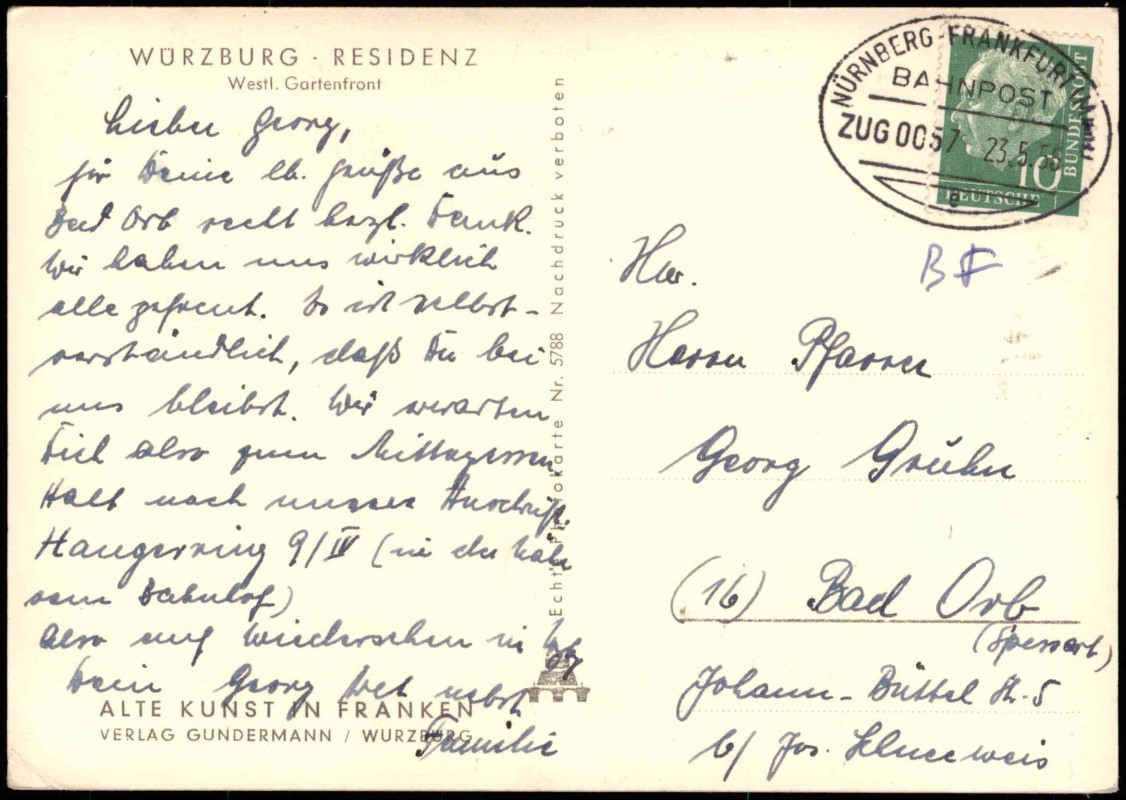 WÜRZBURG · RESIDENZ
Westl. Gartenfront
Lieber Georg,
für Deine lb. Grüße aus
Bad Orb recht herzl. Dank.
Wir haben uns wirklich
alle gefreut. Es ist selbst-
verständlich, daß Du bei
uns bleibst. Wir erwarten
Dich also zum Mittagessen
Halt nach unserer Anschrift.
Haugerring 9/IV (in der Nähe
vom Bahnhof)
Also auf Wiedersehen in
Dein Georg nebst
Familie
ALTE KUNST IN FRANKEN
VERLAG GUNDERMANN / WÜRZBURG
Echte Photokarte Nr. 5788 Nachdruck verboten
NÜRNBERG-FRANKFURT (MAIN)
BAHNPOST
ZUG 0057 23.5.56
a
10
DEUTSCHE
BUNDESPOST
B F
Herrn Pfarrer
Georg Grühn
(16) Bad Orb
(Spessart)
Johann-Büttel Str. 5
b/ Jos. Schneeweis